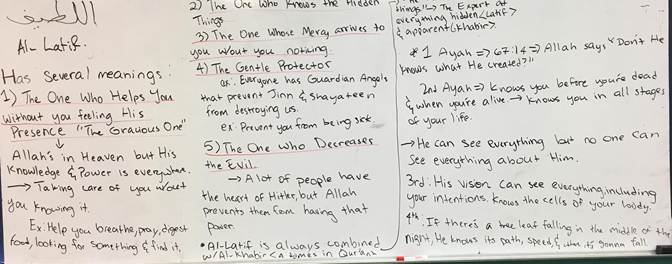 اللطيف
Al-Latif.
Has several meanings:
1) The One Who Helps You
without you feeling His
Presence "The Gracious One"
↓
Allah's in Heaven but His
Knowledge & Power is everywhere.
→ Taking care of you w/out
you knowing it.
Ex: Help you breathe, pray, digest
food, looking for something & find it,
2) The One Who Knows the Hidden
Things
3) The One Whose Mercy arrives to
you w/out you noticing
4) The Gentle Protector
ex: Everyone has Guardian Angels
that prevent Jinn & Shayateen
from destroying us.
ex: Prevent you from being sick.
5) The One who Decreases
the Evil.
→ A lot of people have
the heart of Hitler, but Allah
prevents them from having that
power.
• Al-Latif is always combined
w/Al-Khabir 2 times in Qur'an
things ↳ The Expert at
everything hidden (Latif)
& apparent (Khabir).
* 1 Ayah => 67:14 => Allah says "Don't He
knows what He created?"
2nd Ayah => Knows you before you're dead
& when you're alive → Knows you in all stages
of your life.
→ He can see everything but no one can
see everything about Him.
3rd: His vision can see everything, including
your intentions. Knows the cells of your body.
4th: If there's a tree leaf falling in the middle of the
night, He knows its path, speed, & gonna fall.